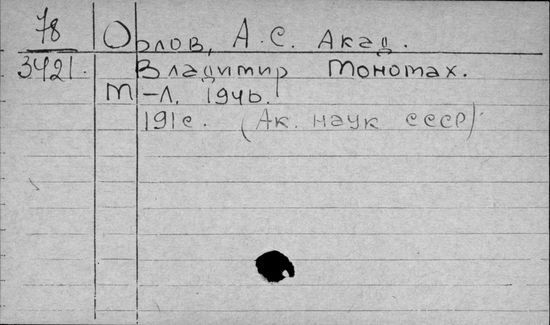 78 Орлов, А.С. Акад.
3421. Владимир Мономах.
М-Л, 1946.
191с. (Ак. наук СССР)